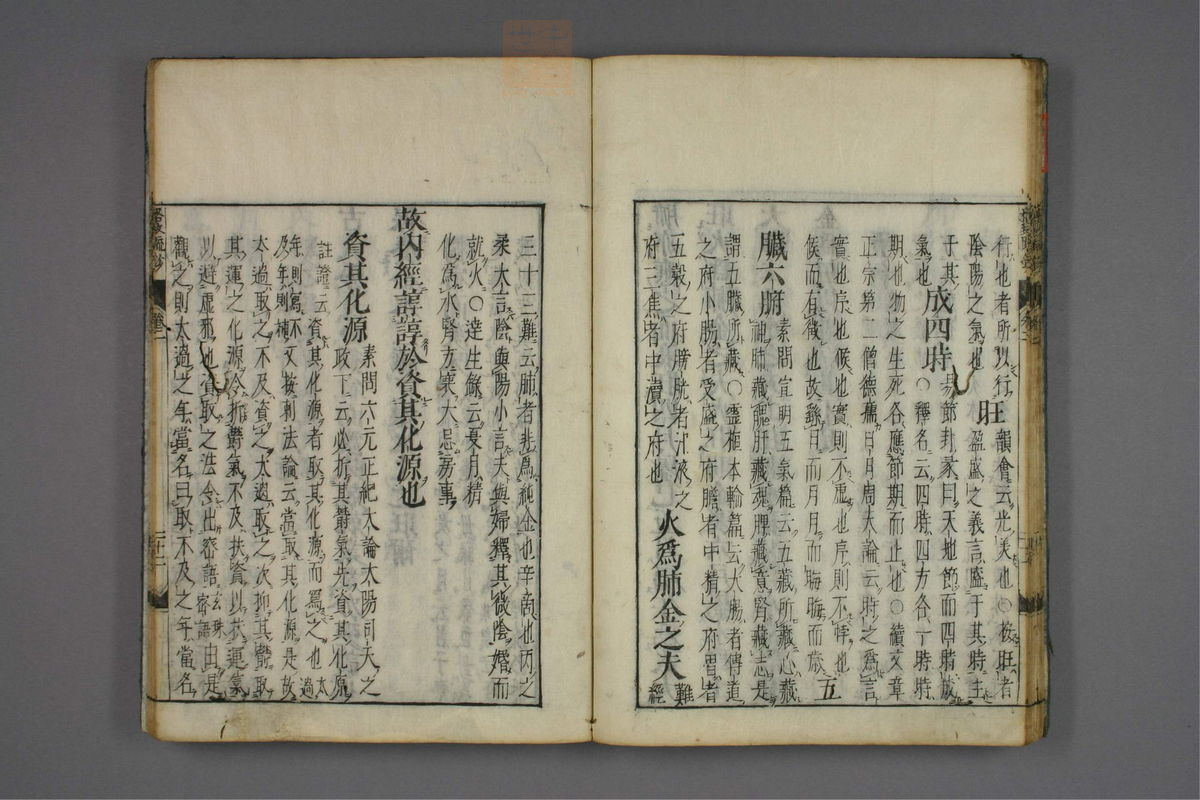 行也者所以行
旺
韻會云光美也○按旺者
陰陽之氣也
盈盛之義言盛于其時主
于其
氣也
成四時
易節彖曰天地節而四時成
○釋名云四時四方各一時時
期也物之生死各應節期而止也○續文章
正宗第二僧德儒日月周天論云時之爲言
實也序也候也實則不虛也序則不悖也
候而有徵也故繇日而月月而晦晦而歲
五
臟六腑
素問宣明五氣篇云五藏所藏心藏
神肺藏魄肝藏魂脾藏意腎藏志是
謂五臟所藏○靈樞本輸篇云大腸者傳道
之府小腸者受盛之府膽者中精之府胃者
五穀之府膀胱者津液之
府三焦者中瀆之府也
火爲肺金之夫
難
經
三十三難云肺者非爲純金也辛商也丙之
柔大言陰與陽小言夫與婦釋其微陰婚而
就火○達生錄云夏月精
化爲水腎方衰大忌房事
故内經諄諄於資其化源也
資其化源
素問六元正紀大論太陽司天之
政下云必折其鬱氣先資其化源
註證云資其化源者取其化源而爲之也太過
年則瀉不
及年則補
又按刺法論云當取其化源是故
太過取之不及資之太過取之次抑其鬱取
其運之化源令折鬱氣不及扶資以扶運氣
以避虛邪也資取之法令出密語玄珠
密語
由是
觀之則太過之年當名曰取不及之年當名